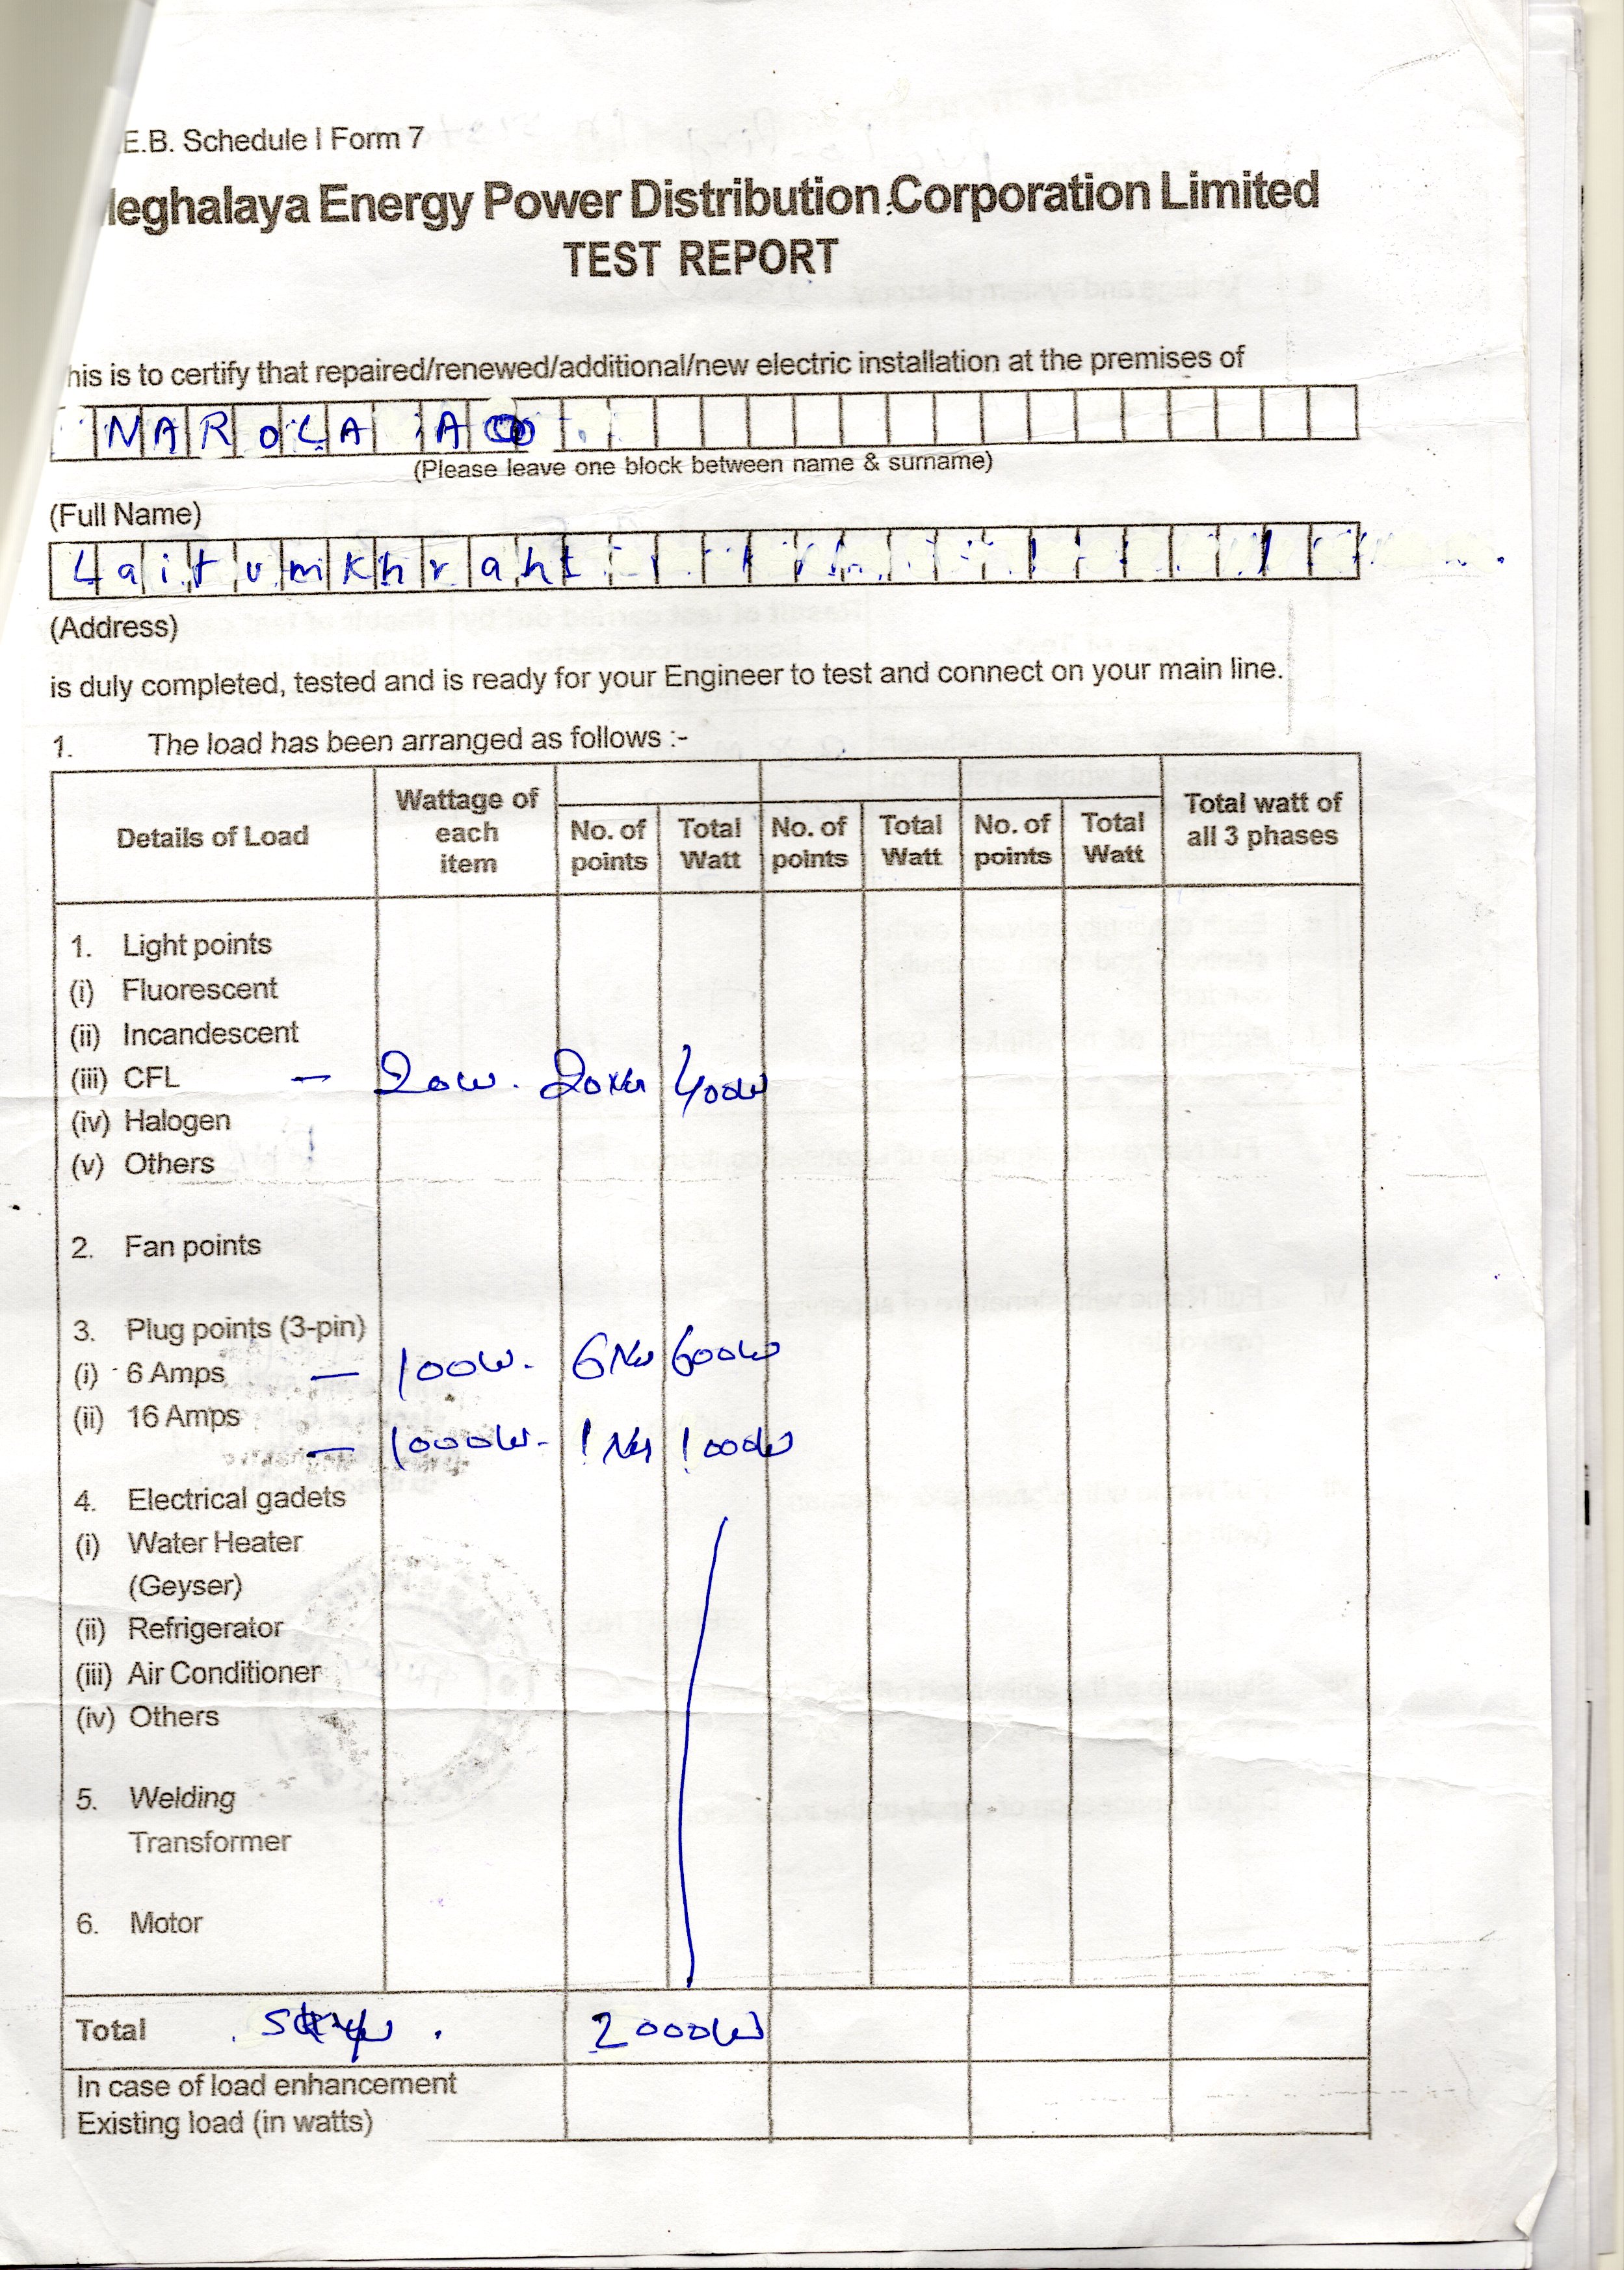 .E.B. Schedule I Form 7
leghalaya Energy Power Distribution Corporation Limited
TEST REPORT
his is to certify that repaired/renewed/additional/new electric installation at the premises of
NAROLA
(Please leave one block between name & surname)
(Full Name)
Laitumkhrah
(Address)
is duly completed, tested and is ready for your Engineer to test and connect on your main line.
1. The load has been arranged as follows :-
Details of Load Wattage of each item No. of points Total Watt No. of points Total Watt No. of points Total Watt Total watt of all 3 phases
1. Light points
(i) Fluorescent
(ii) Incandescent
(iii) CFL — 20W. 20 400W
(iv) Halogen
(v) Others
2. Fan points
3. Plug points (3-pin)
(i) 6 Amps — 100W. 6 Nos 600W
(ii) 16 Amps — 1000W. 1 No 1000W
4. Electrical gadets
(i) Water Heater
(Geyser)
(ii) Refrigerator
(iii) Air Conditioner
(iv) Others
5. Welding
Transformer
6. Motor
Total 2000W
In case of load enhancement
Existing load (in watts)